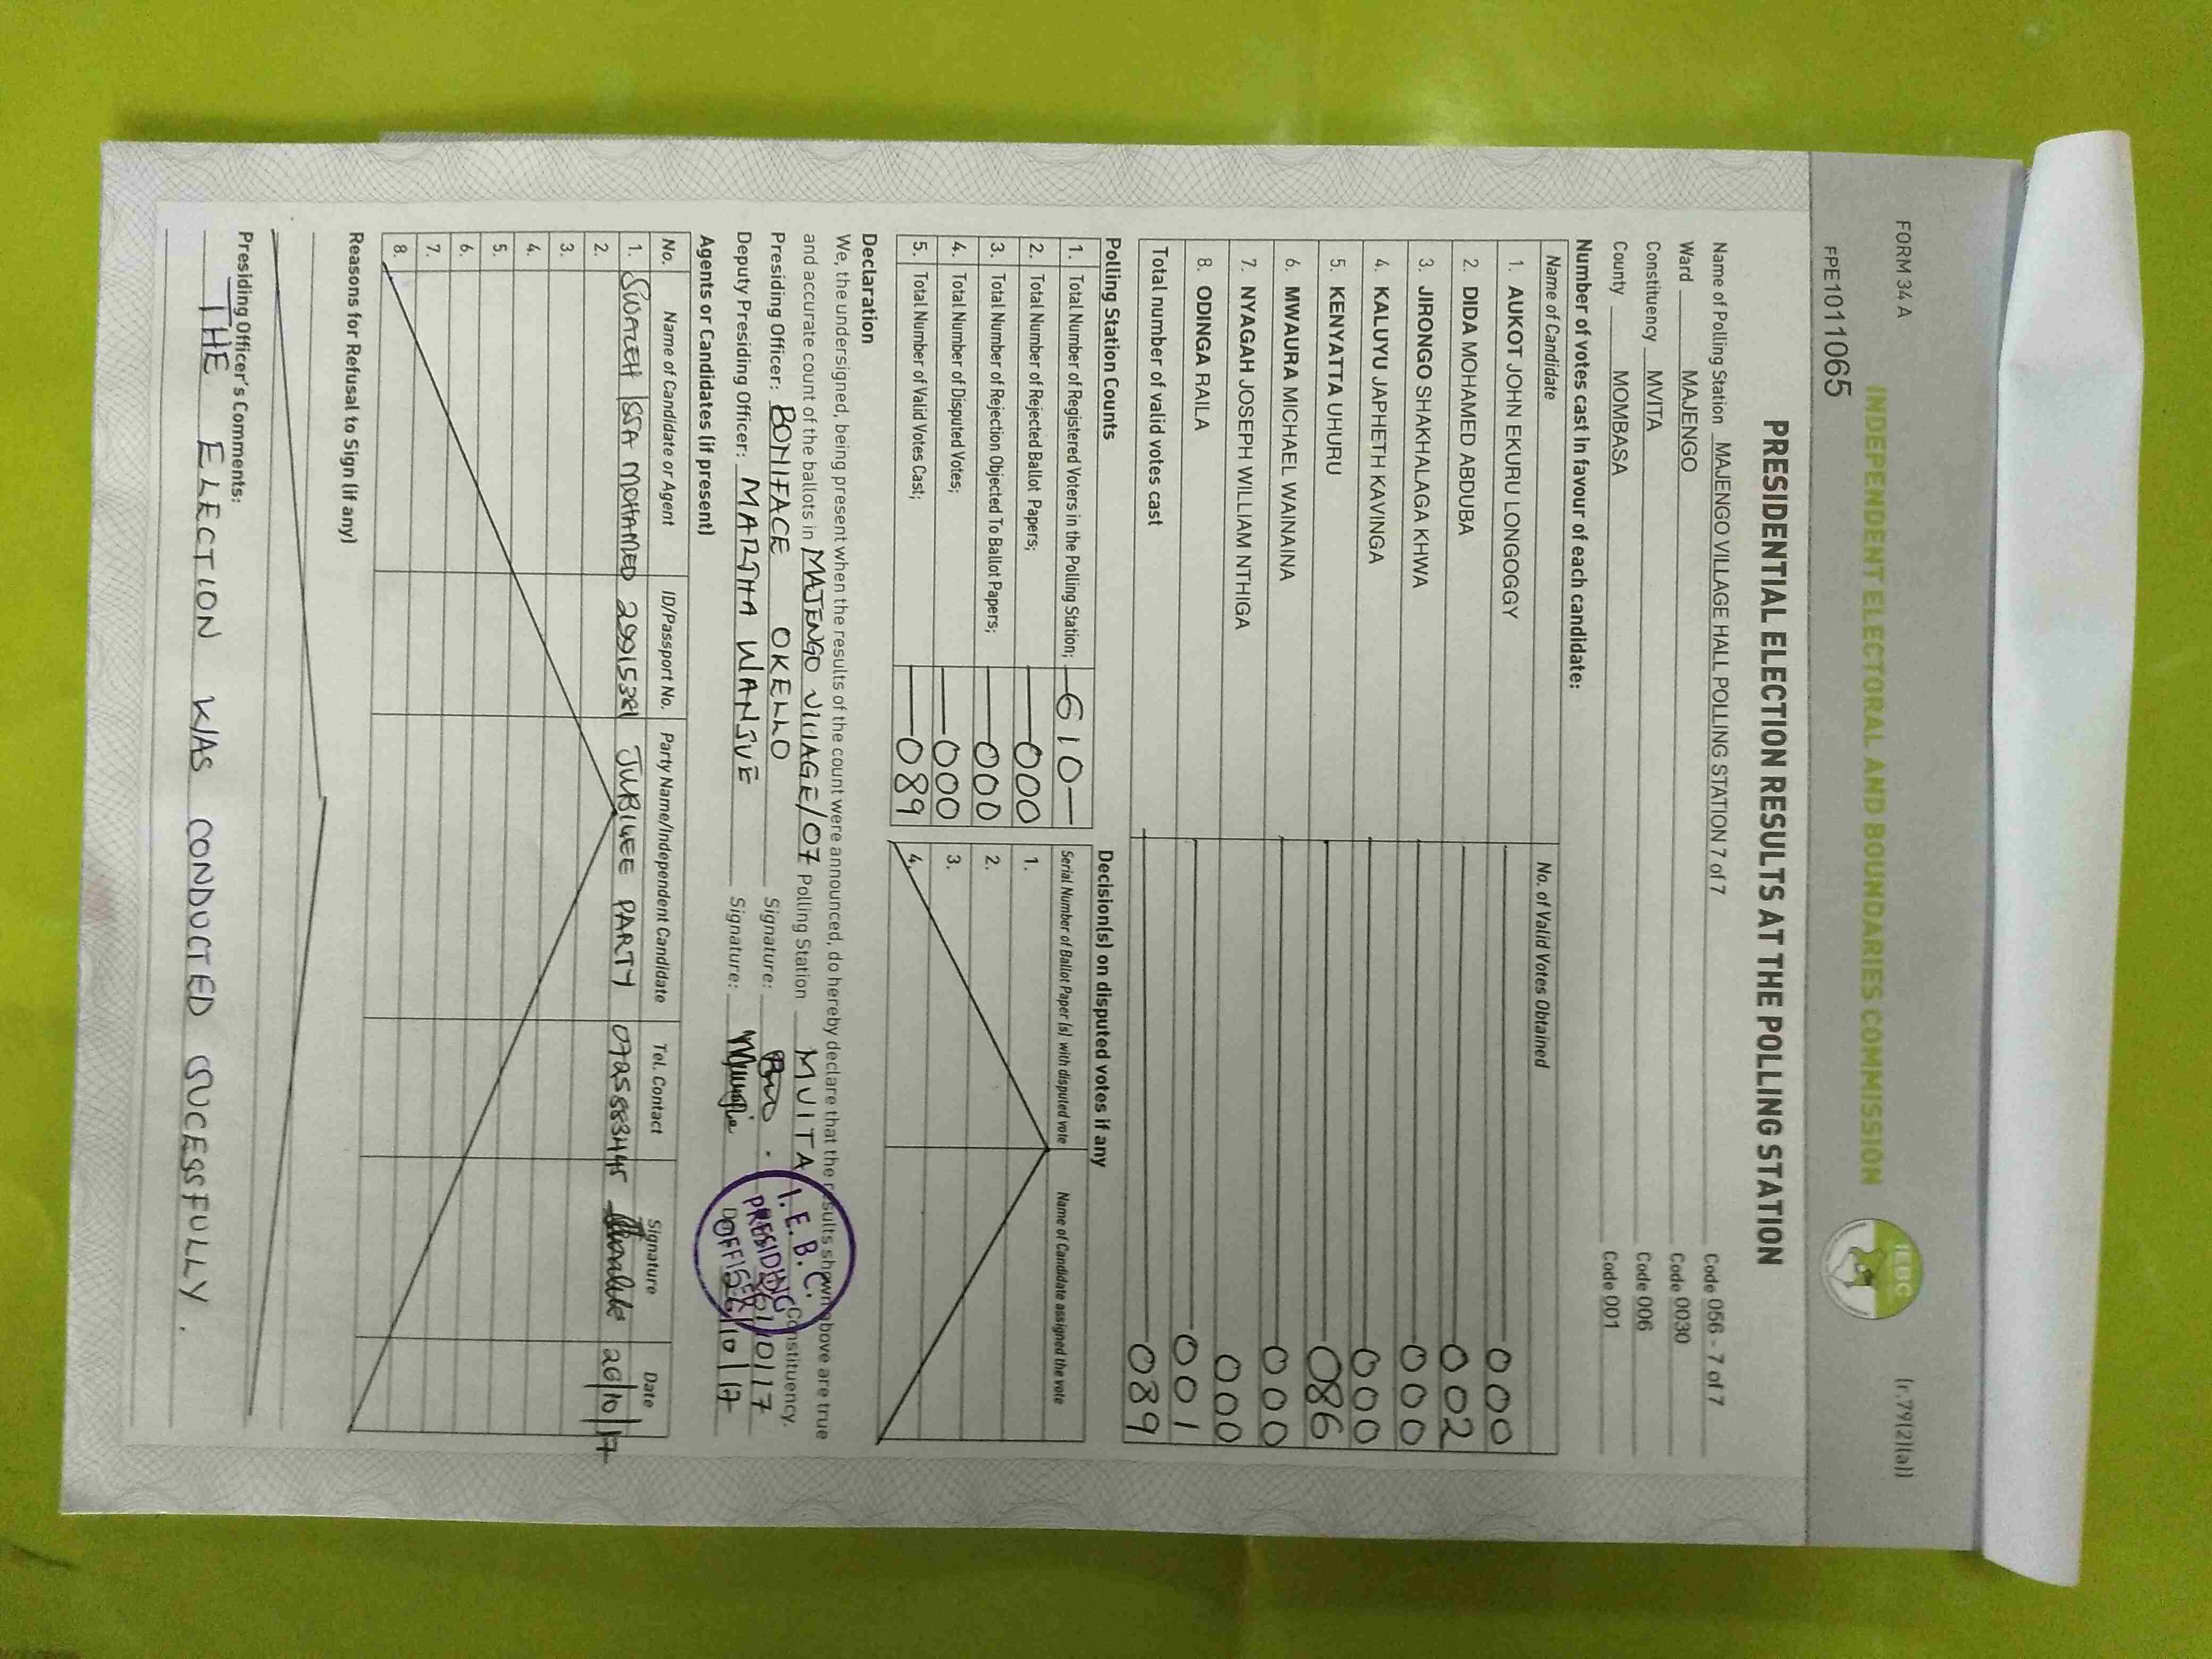 FORM 34 A
(r.79(2)(a))
INDEPENDENT ELECTORAL AND BOUNDARIES COMMISSION
IEBC
FPE1011065
PRESIDENTIAL ELECTION RESULTS AT THE POLLING STATION
Name of Polling Station MAJENGO VILLAGE HALL POLLING STATION 7 of 7 Code 056 - 7 of 7
Ward MAJENGO Code 0030
Constituency MVITA Code 006
County MOMBASA Code 001
Number of votes cast in favour of each candidate:
Name of Candidate No. of Valid Votes Obtained
1. AUKOT JOHN EKURU LONGOGGY 000
2. DIDA MOHAMED ABDUBA 002
3. JIRONGO SHAKHALAGA KHWA 000
4. KALUYU JAPHETH KAVINGA 000
5. KENYATTA UHURU 086
6. MWAURA MICHAEL WAINAINA 000
7. NYAGAH JOSEPH WILLIAM NTHIGA 000
8. ODINGA RAILA 001
Total number of valid votes cast 089
Polling Station Counts
1. Total Number of Registered Voters in the Polling Station; 610
2. Total Number of Rejected Ballot Papers; 000
3. Total Number of Rejection Objected To Ballot Papers; 000
4. Total Number of Disputed Votes; 000
5. Total Number of Valid Votes Cast; 089
Decision(s) on disputed votes if any
Serial Number of Ballot Paper (s) with disputed vote Name of Candidate assigned the vote
1.
2.
3.
4.
Declaration
We, the undersigned, being present when the results of the count were announced, do hereby declare that the results shown above are true
and accurate count of the ballots in MAJENGO VILLAGE/07 Polling Station MVITA Constituency.
Presiding Officer: BONIFACE OKELLO Signature: 26/10/17
Deputy Presiding Officer: MARTHA WANJUE Signature: 26/10/17
I. E. B. C.
PRESIDING
OFFICER
Agents or Candidates (if present)
No. Name of Candidate or Agent ID/Passport No. Party Name/Independent Candidate Tel. Contact Signature Date
1. ISSA MOHAMED JUBILEE PARTY 26/10/17
2.
3.
4.
5.
6.
7.
8.
Reasons for Refusal to Sign (if any)
Presiding Officer's Comments:
THE ELECTION WAS CONDUCTED SUCESSFULLY.